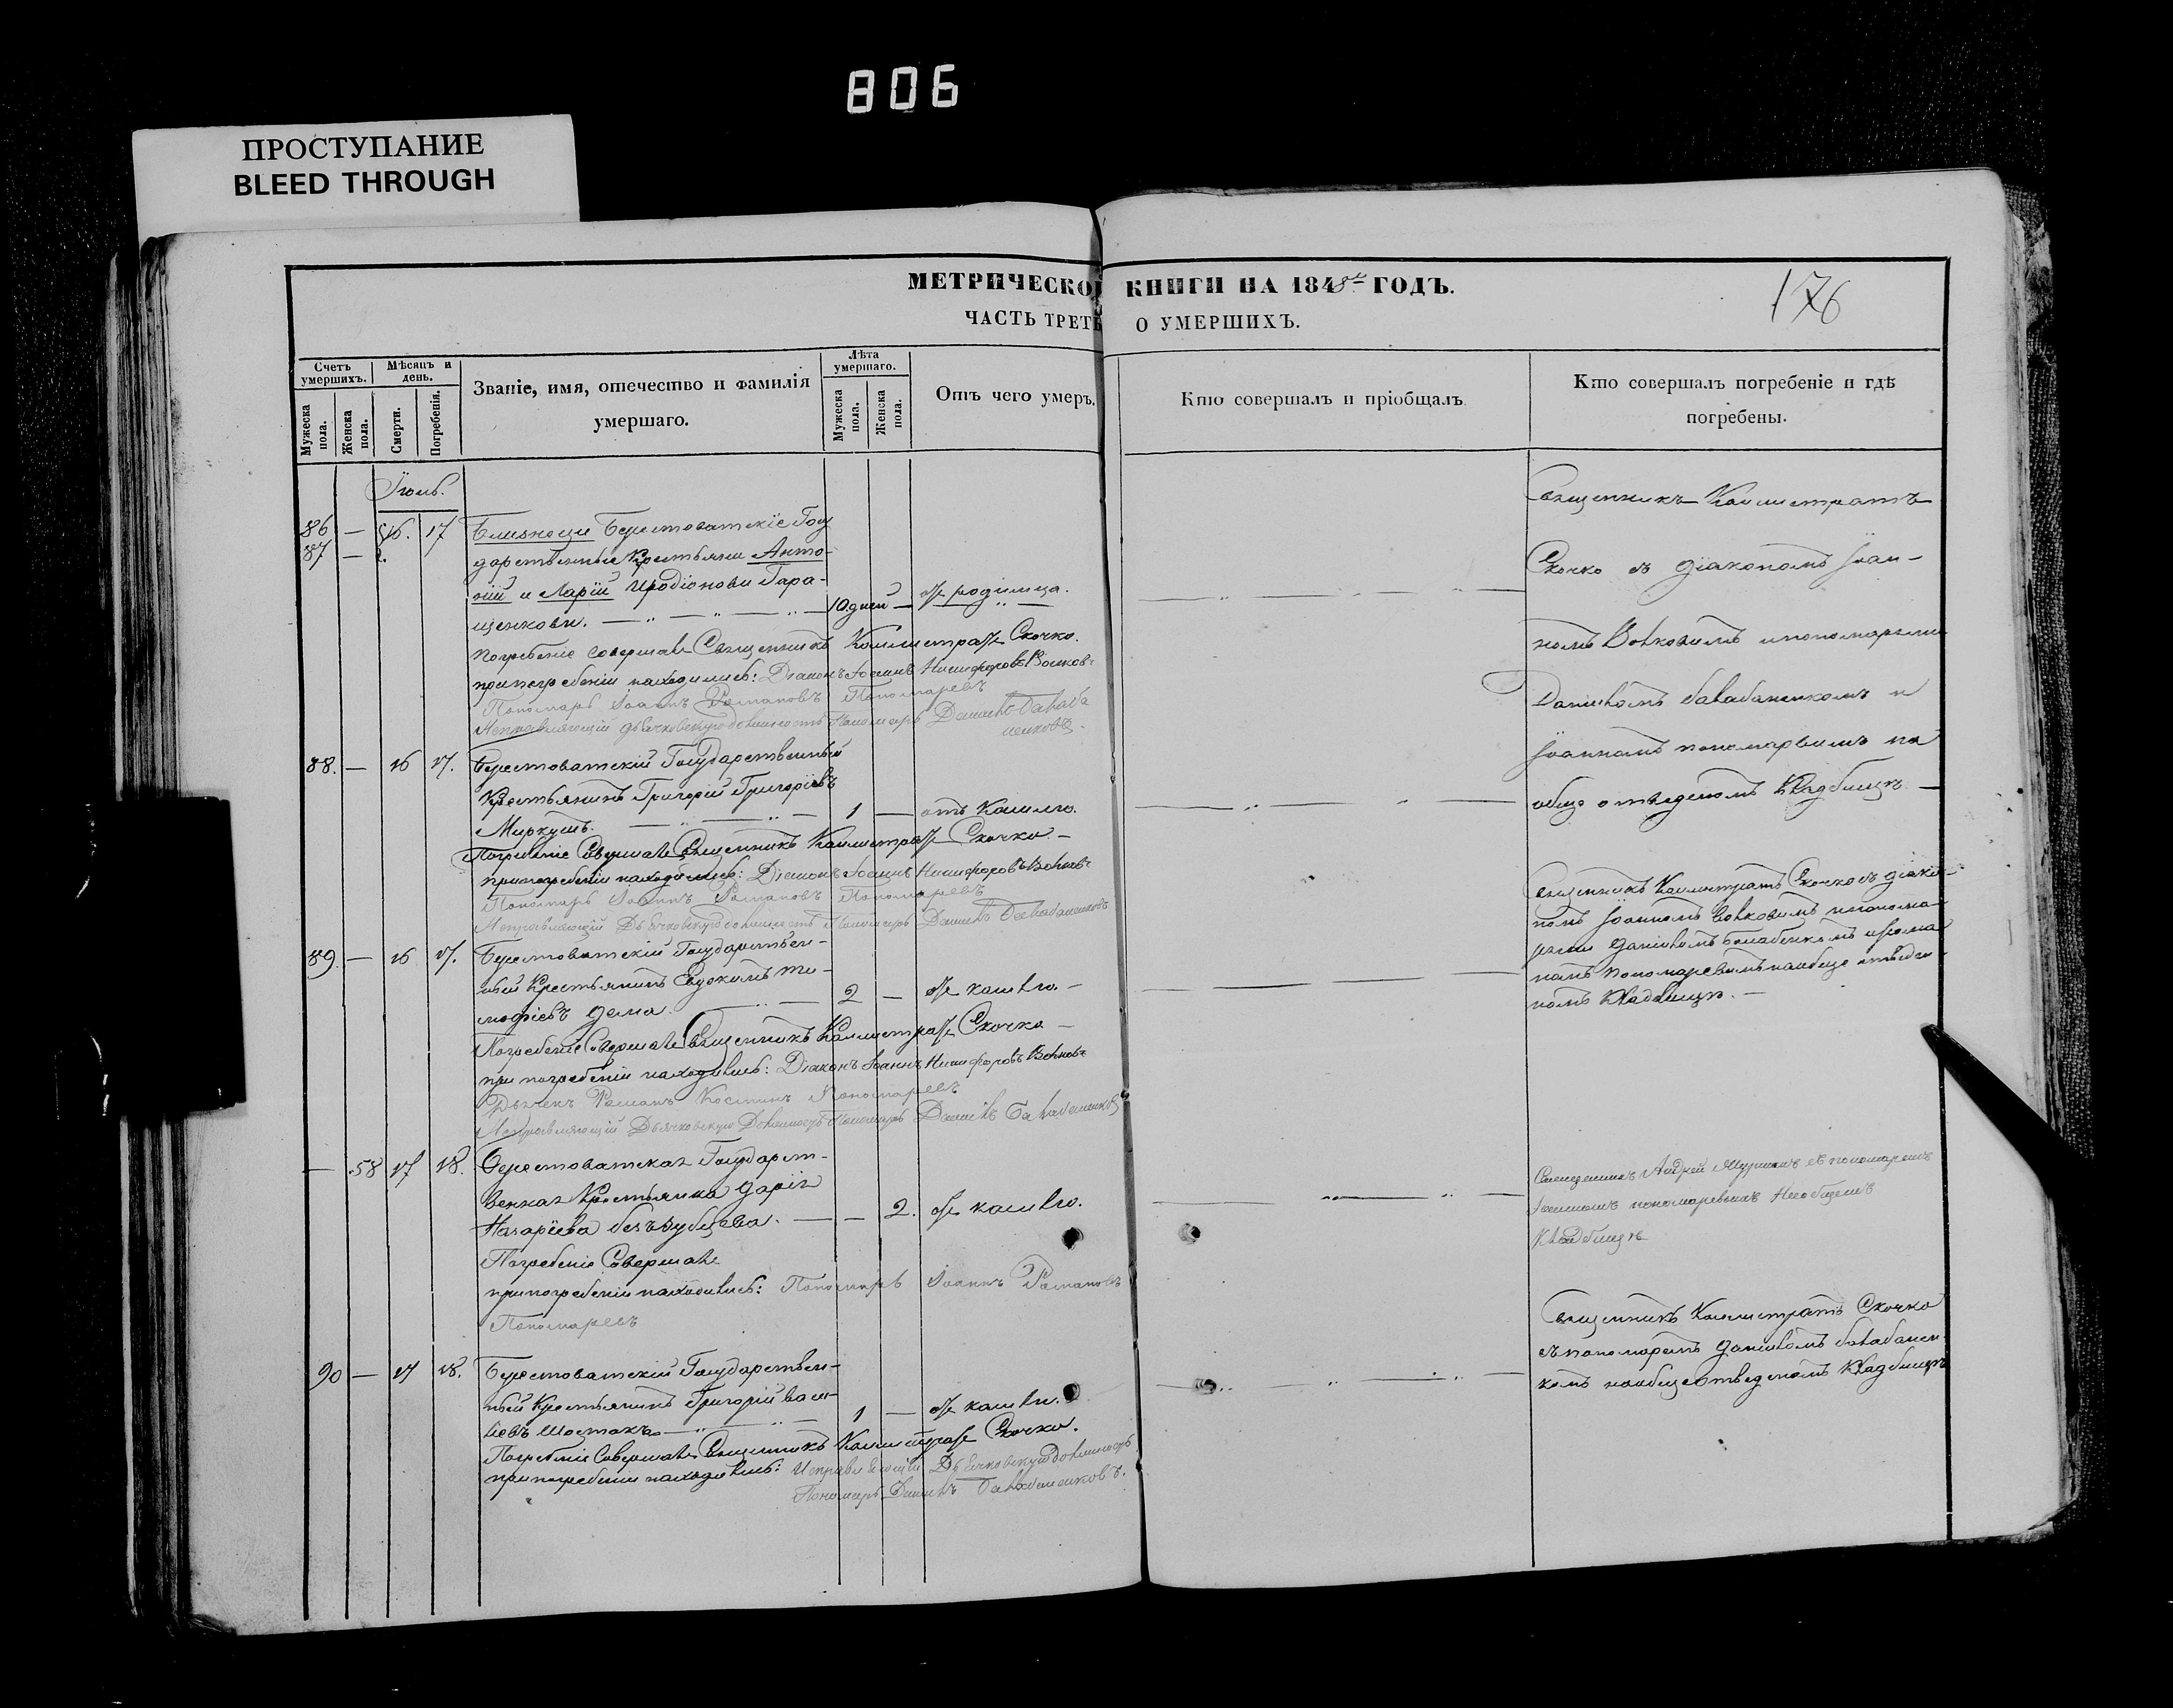 806
ПРОСТУПАНИЕ
BLEED THROUGH
МЕТРИЧЕСКОЙ КНИГИ НА 1848й ГОДЪ.
176
ЧАСТЬ ТРЕТЬ О УМЕРШИХЪ.
Счетъ умершихъ.
Мѣсяцъ и день.
Званіе, имя, отечество и фамилія умершаго.
Лѣта умершаго.
Отъ чего умеръ.
Кто совершалъ и пріобщалъ
Кто совершалъ погребеніе и гдѣ погребены.
Мужеска пола.
Женска пола.
Смерти.
Погребенія.
Мужеска пола.
Женска пола.
Іюль.
86 — 16. 17 Близнеци Берестоватскіе Госу
87 — дарственные Крестьяни Анто-
ній и Ларій Иродіонови Гара-
щенкови. — 10 дней — отъ родимца.
Погребеніе совершалъ Священникъ Калистратъ Скочко.
при погребеніи находились: Діаконъ Іоаннъ Никифоровъ Волковъ
Пономарь Іоаннъ Романовъ Пономаревъ
Исправляющій дьячковскую должность Пономарь Даниилъ Балаба
ненковъ.
Священникъ Калистратъ
Скочко съ діакономъ Іоан-
номъ Волковимъ и пономарями
Даніиломъ Балабаненкомъ и
Іоанномъ пономарвимъ на
обще отведеномъ Кладбищѣ. —
88. — 16 17. Берестоватскій Государственный
Крестьянинъ Григорій Григоріевъ
Миркушъ. — 1 — отъ Кашлю.
Погребеніе Совершалъ Священникъ Калистратъ Скочко. —
при погребеніи находились: Діаконъ Іоаннъ Никифоровъ Волковъ
Пономарь Іоаннъ Романовъ Пономаревъ
Исправляющій Дьячковскую должность Пономарь Даниилъ Балабаненковъ
Священникъ Калистратъ Скочко съ діако-
номъ Іоанномъ Волковимъ и понома-
рями Даніиломъ
номъ Пономаревимъ на обще отведе
номъ Кладбищѣ. —
89. — 16 17. Берестоватскій Государствен-
ный Крестьянинъ Евдокимъ Ти-
мофіевъ Дема. — 2 — отъ кашлю. —
Погребеніе Совершалъ Священникъ Калистратъ Скочко —
при погребеніи находились: Діаконъ Іоаннъ Никифоровъ Волковъ
Дьячекъ Романъ Костинъ Пономаревъ
Исправляющій Дьячковскую Должность Пономарь Даниилъ Балабаненковъ
— 58 17 18. Берестоватская Государст-
венная Крестьянка Дарія
Назаріева Безъзубцева. — — 2. отъ кашлю.
Погребеніе Совершалъ
при погребеніи находились: Пономарь Іоаннъ Романовъ
Пономаревъ
Священникъ Андрей съ пономаремъ
Іоанномъ пономаревымъ На общемъ
Кладбищѣ
90 — 17 18. Берестоватскій Государствен-
ный Крестьянинъ Григорій Васи-
ліевъ Шостакъ — 1 — отъ кашлю.
Погребеніе Совершалъ Священникъ Калистратъ Скочко.
при погребеніи находились: Исправляющій Дьячковскую должность
Пономарь Даниилъ Балабаненковъ.
Священникъ Калистратъ Скочко
съ пономаремъ Даніиломъ Балабанен
комъ на обще отведеномъ Кладбищѣ